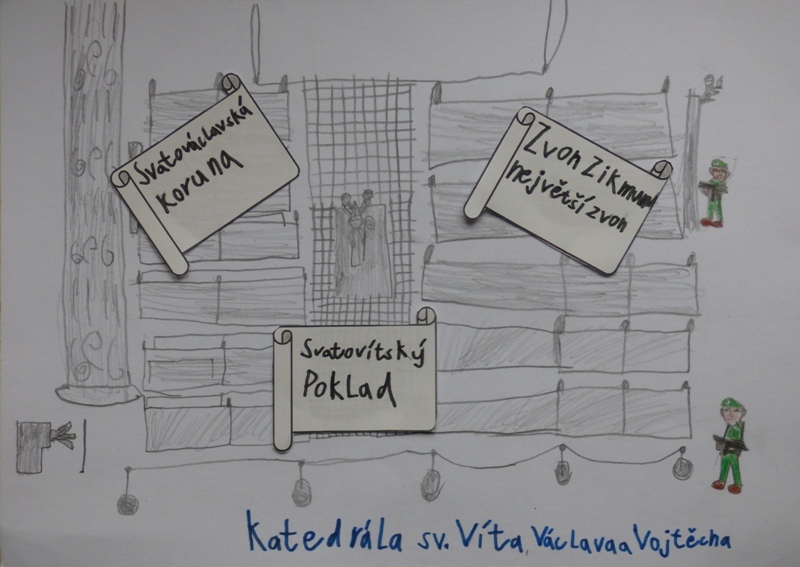 Svatováclavská
koruna
Zvon Zikmund
největší zvon
Svatovítský
Poklad
Katedrála sv. Víta, Václava a Vojtěcha